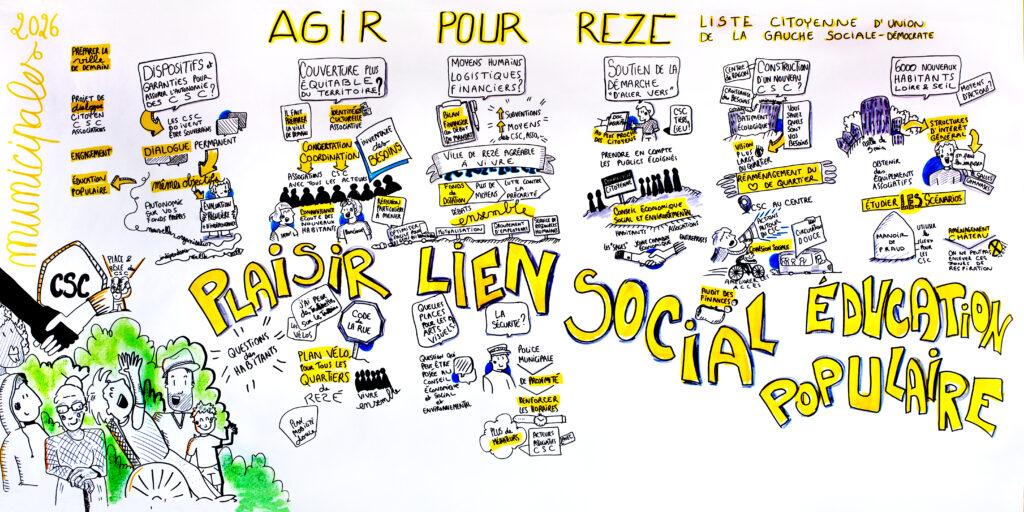 municipales 2026
AGIR POUR REZE
LISTE CITOYENNE D'UNION
DE LA GAUCHE SOCIALE-DÉMOCRATE
PRÉPARER LA
ville
DE DEMAIN
PROJET DE
dialogue
CITOYEN
CSC
ASSOCIATIONS
ENGAGEMENT
ÉDUCATION
POPULAIRE
DISPOSITIFS et
GARANTIES POUR
ASSURER L'AUTONOMIE
DES CSC?
LES CSC
DOIVENT
ÊTRE SOUVERAINS
DIALOGUE PERMANENT
mêmes objectifs
AUTONOMIE
SUR VOS
FONDS PROPRES
ÉVALUATION
RÉGULIÈRE
COUVERTURE PLUS
ÉQUITABLE DU
TERRITOIRE?
IL FAUT
PRÉPARER
LA VILLE
DE DEMAIN
IDENTITÉ CULTURELLE
ASSOCIATIVE
CONCERTATION
COORDINATION
COUVERTURE
des
BESOINS
ASSOCIATIONS CSC
AVEC TOUS LES ACTEURS
CONNAISSANCE
ÉCOUTE DES
NOUVEAUX
HABITANTS
RÉFLEXION
PARTICULIÈRE
À MENER
MOYENS HUMAINS
LOGISTIQUES
FINANCIERS?
BILAN
FINANCIER
EN DÉBUT
DE MANDAT
SUBVENTIONS
MOYENS
des CSC, ASSO,...
VILLE DE REZÉ AGRÉABLE
À VIVRE
FONDS de
DOTATION
PLUS DE
MOYENS
LUTTE CONTRE
LA
PRÉCARITÉ
DÉBATS ensemble
MUTUALISATION
GROUPEMENT
D'EMPLOYEURS
SERVICE DE
RESSOURCES
HUMAINES
SOUTIEN DE LA
DÉMARCHE
"D'ALLER VERS"
AU PLUS PROCHE
DES CITOYENS
CSC
TIERS
LIEU
PRENDRE EN COMPTE
LES PUBLICS ÉLOIGNÉS
CITOYENNE
CONSEIL ÉCONOMIQUE
SOCIAL ET ENVIRONNEMENTAL
HABITANTS
ASSOCIATIONS
ENTREPRISES
CENTRE de
RAGON
CONSTRUCTION
D'UN NOUVEAU
CSC?
CROISSANCE
des BESOINS
BÂTIMENT
ÉCOLOGIQUE
VOUS
SAVEZ
QUELS
SONT VOS
BESOINS
VISION
PLUS
LARGE
DU QUARTIER
RÉAMÉNAGEMENT DU
DE QUARTIER
CSC AU CENTRE
ACTIONS
AUTOUR
du CSC
COHÉSION SOCIALE
CIRCULATION
DOUCE
AMÉLIORER
ACCÈS
AUDIT DES
FINANCES
6000 NOUVEAUX
HABITANTS
LOIRE & SEIL
MOYENS
D'ACTIONS?
STRUCTURES
D'INTÉRÊT
GÉNÉRAL
OBTENIR
des
ÉQUIPEMENTS
ASSOCIATIFS
ÉTUDIER LES SCÉNARIOS
MANOIR
de
PRAUD
UTILISER
LIEUX
POUR
LES
CSC
AMÉNAGEMENT
CHÂTEAU
ON NE DOIT PAS
ENLEVER CES
ZONES DE
RESPIRATION
CSC
PLACE &
RÔLE des
CSC
PLAISIR LIEN SOCIAL ÉDUCATION
POPULAIRE
QUESTIONS
des
HABITANTS
VÉLOS
CODE
LA RUE
PLAN VÉLO
POUR TOUS LES
QUARTIERS
DE
REZÉ
VIVRE
ensemble
PLAN
MOBILITÉ
douce
QUELLES
PLACES
POUR LES
ARTS
VISUELS?
QUESTION QUI
PEUT ÊTRE
POSÉE AU
CONSEIL
ÉCONOMIQUE
et SOCIAL
et
ENVIRONNEMENTAL
LA
SÉCURITÉ?
POLICE
MUNICIPALE
DE PROXIMITÉ
RENFORCER
LES HORAIRES
PLUS de
MÉDIATEURS
AVEC
ACTEURS
ASSOCIATIFS
CSC